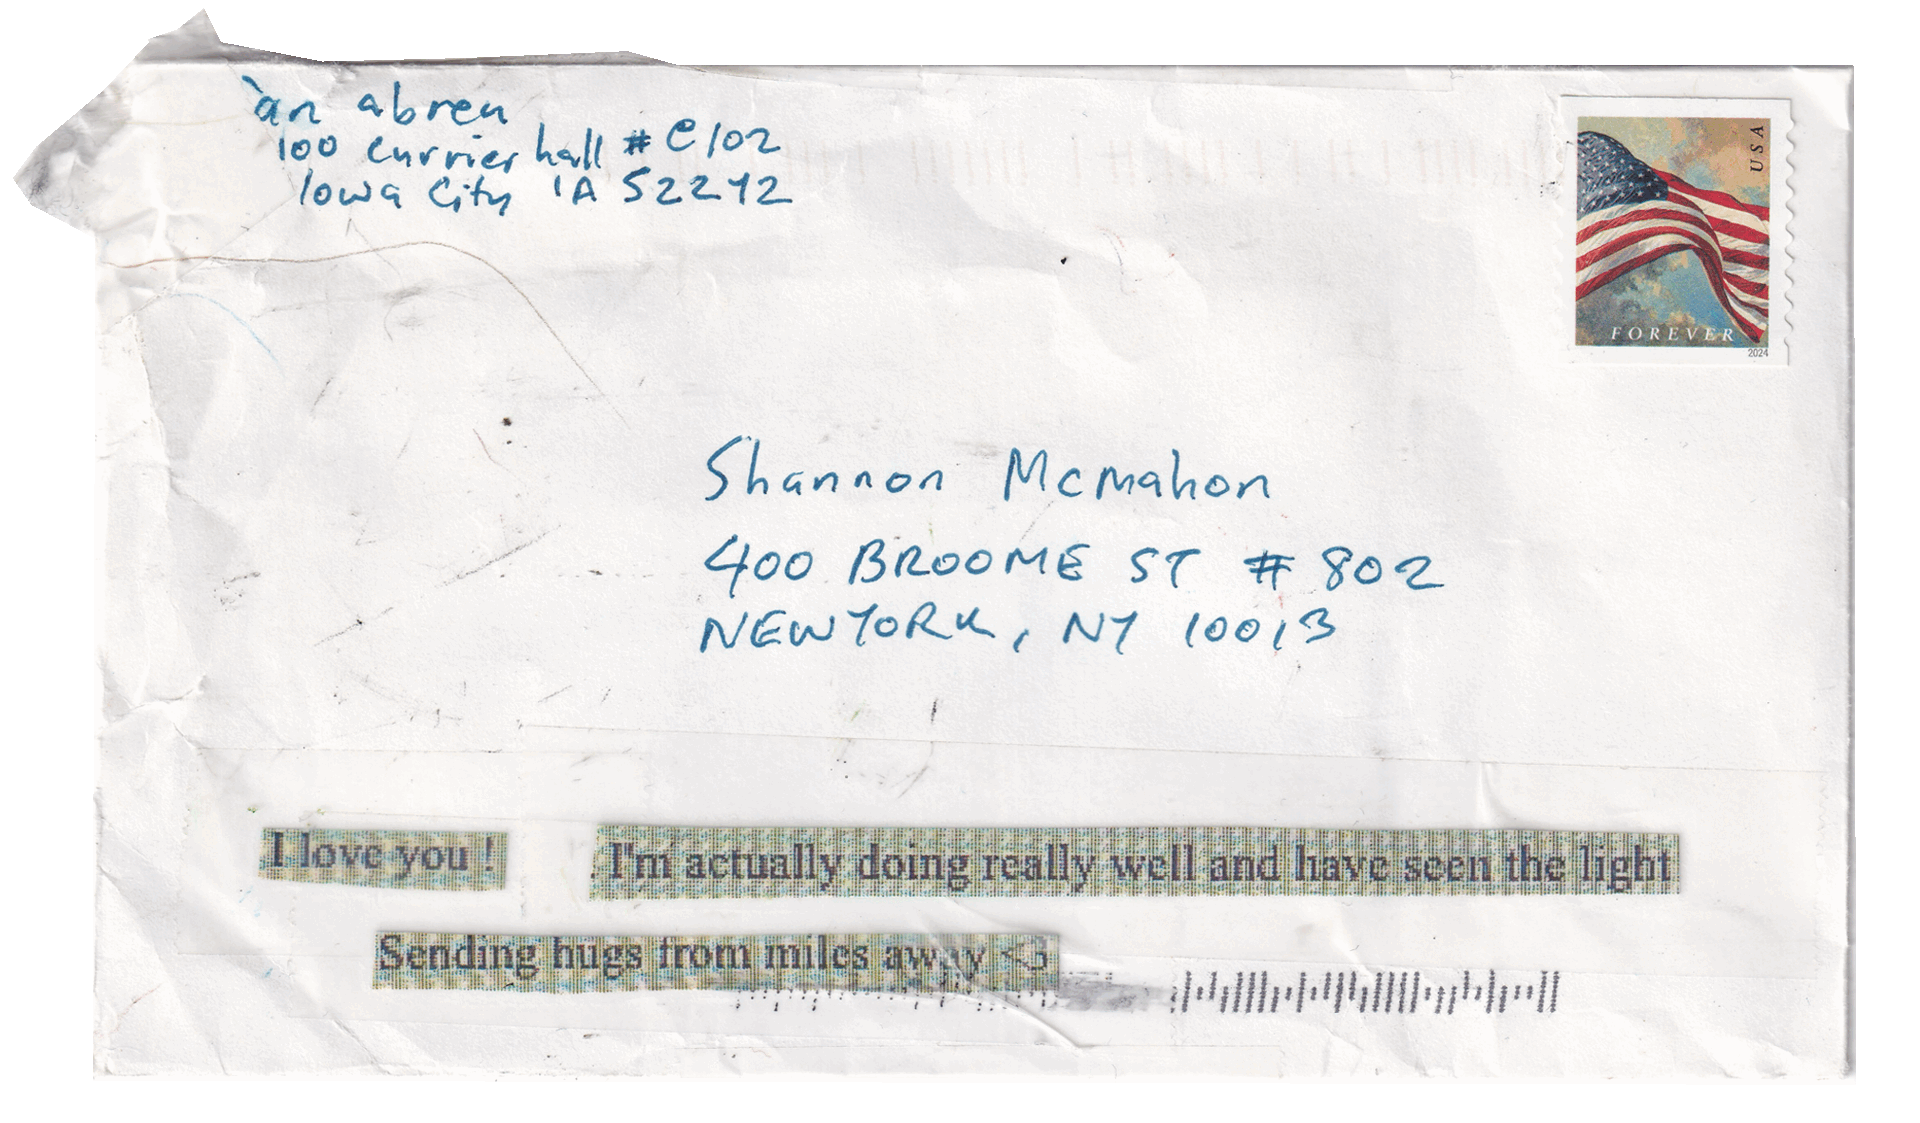 àn abreu
100 Currier hall # C102
Iowa City IA 52242
USA
FOREVER
2024
Shannon Mcmahon
400 BROOME ST # 802
NEW YORK, NY 10013
I love you !
I'm actually doing really well and have seen the light
Sending hugs from miles away <3